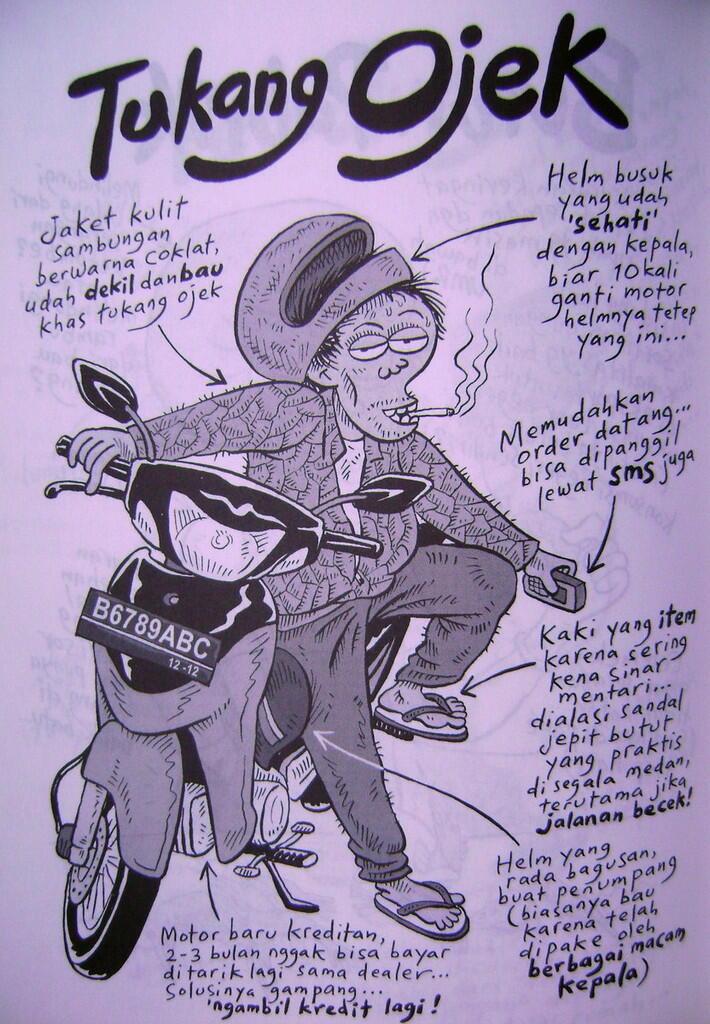 Tukang Ojek
Jaket kulit
sambungan
berwarna coklat,
udah dekil dan bau
khas tukang ojek
Helm busuk
yang udah
'sehati'
dengan kepala,
biar 10 kali
ganti motor
helmnya tetep
yang ini...
Memudahkan
order datang...
bisa dipanggil
lewat SMS juga
B6789ABC
12-12
Kaki yang item
karena sering
kena sinar
mentari...
dialasi sandal
jepit butut
yang praktis
di segala medan,
terutama jika
jalanan becek!
Helm yang
rada bagusan,
buat penumpang
(biasanya bau
karena telah
dipake oleh
berbagai macam
kepala)
Motor baru kreditan,
2-3 bulan nggak bisa bayar
ditarik lagi sama dealer...
Solusinya gampang...
'ngambil kredit lagi!